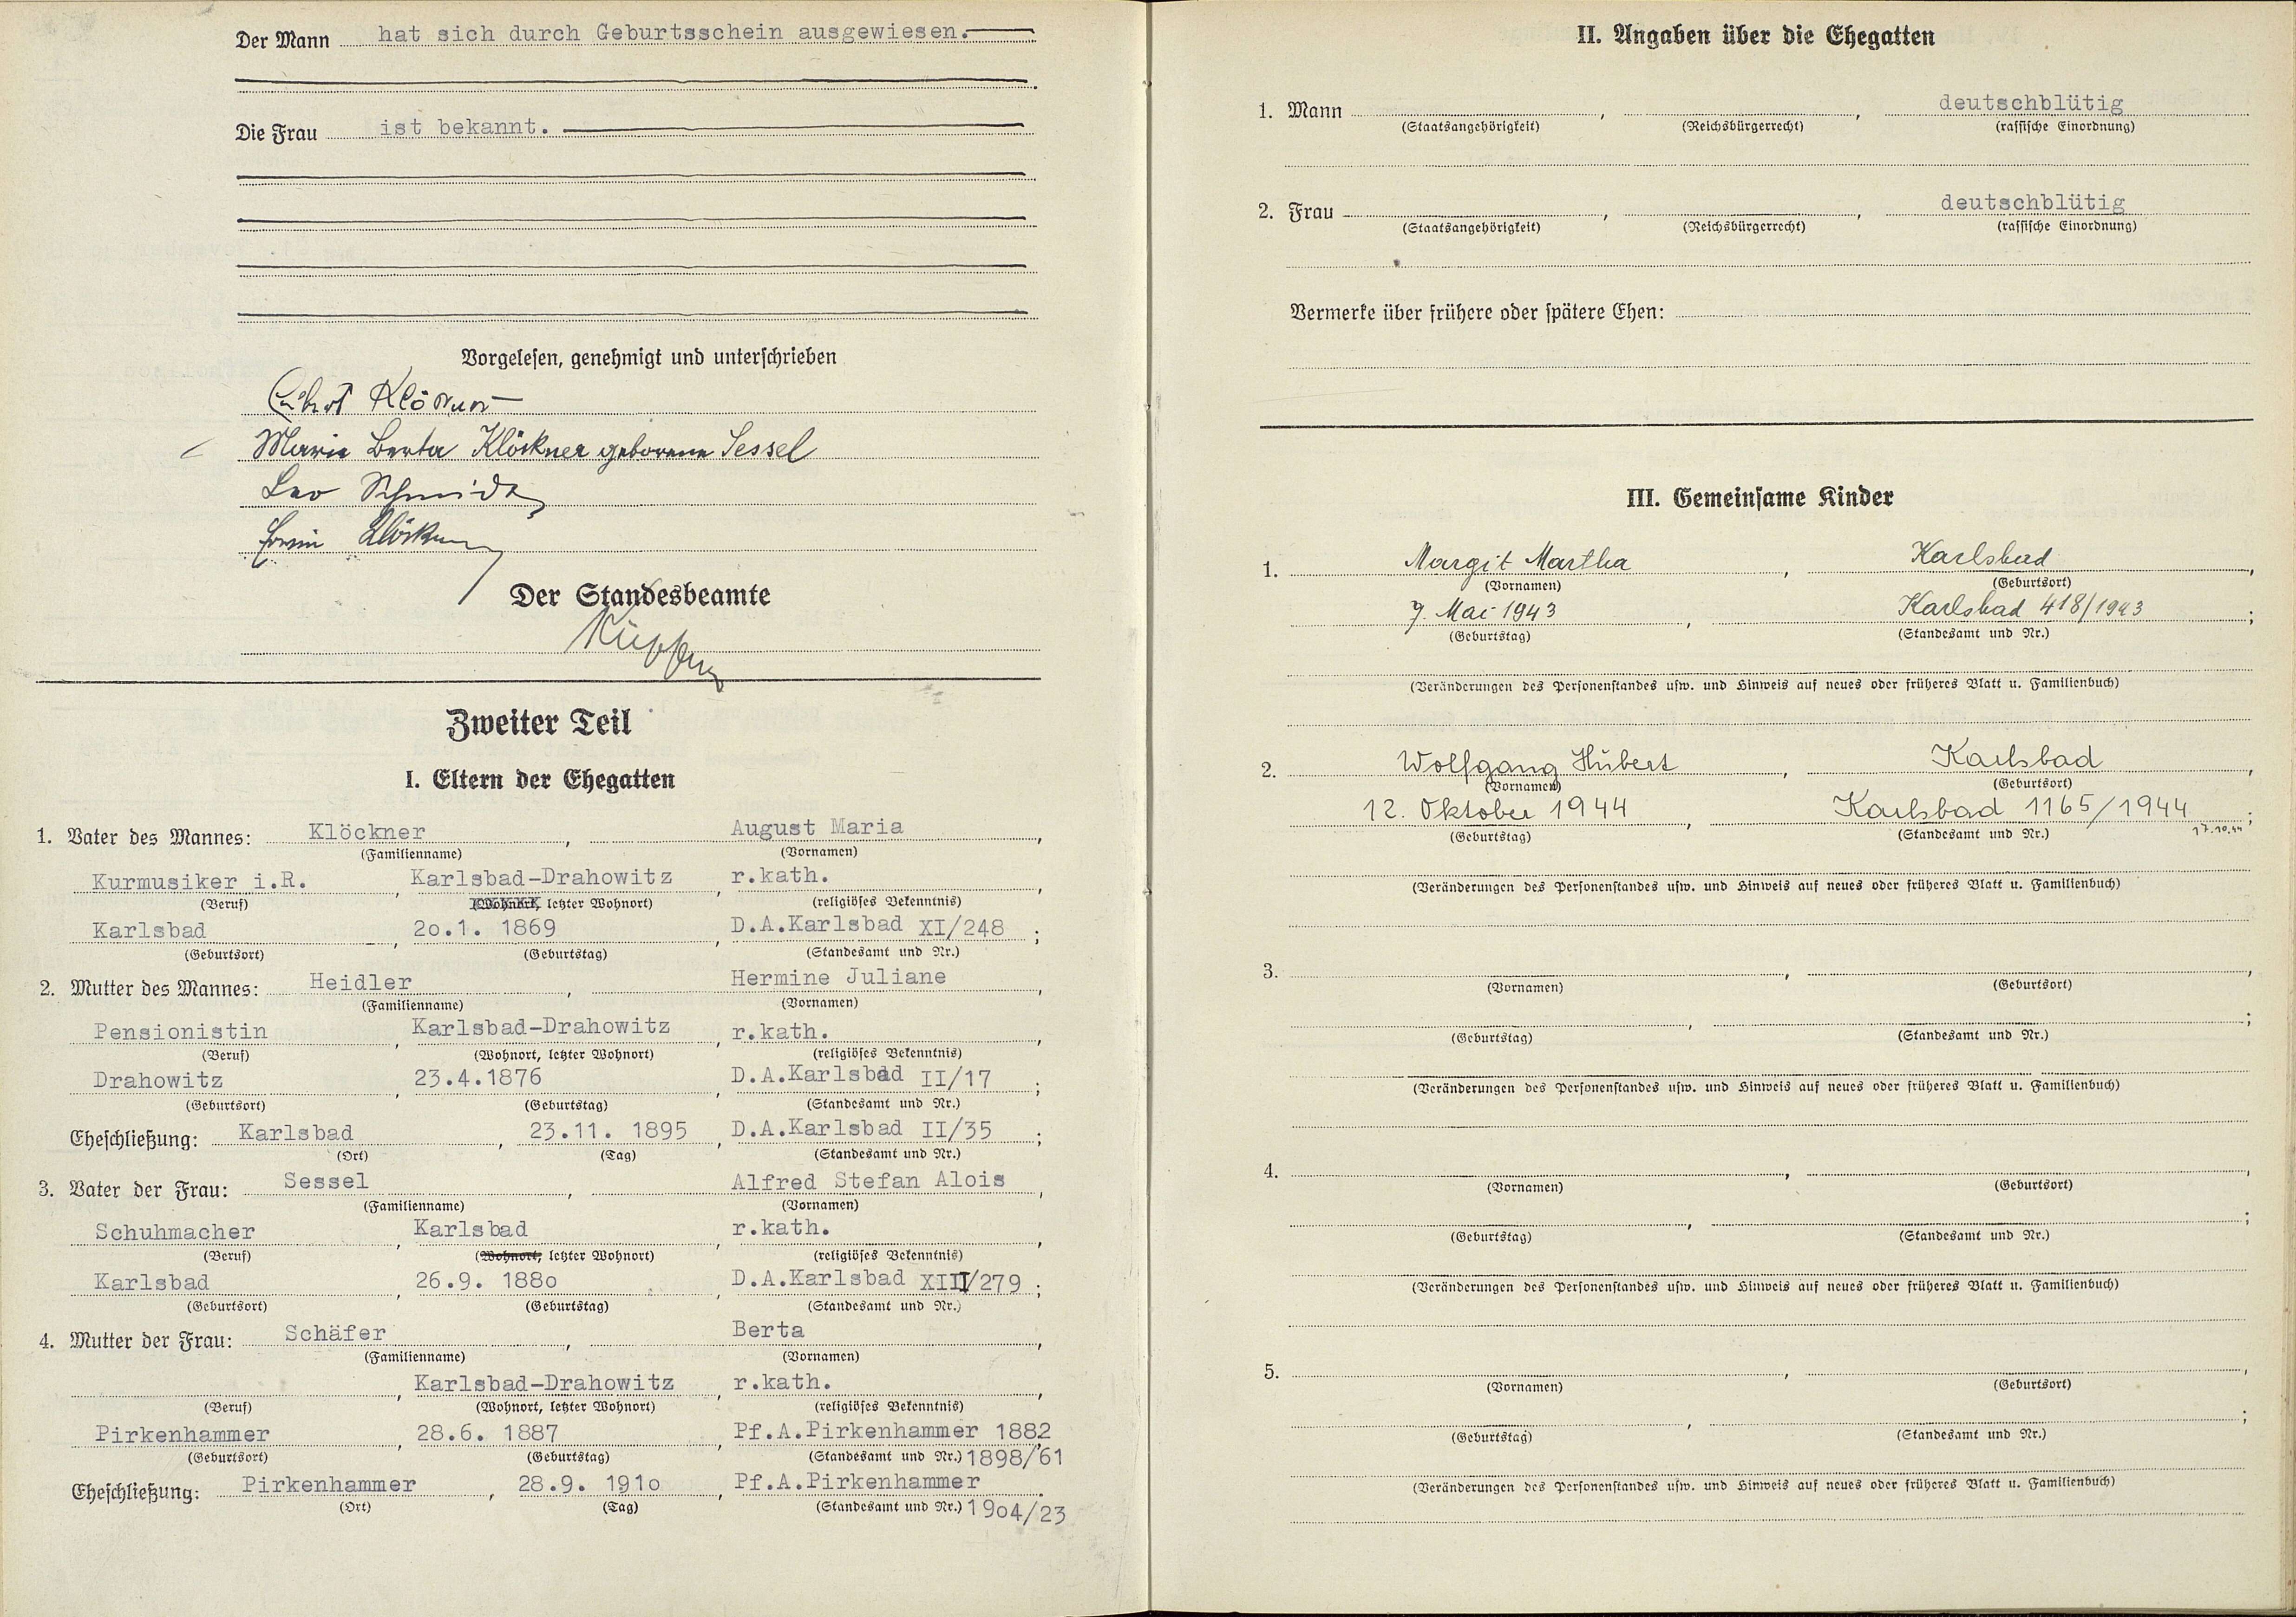 Der Mann hat sich durch Geburtsschein ausgewiesen.
Die Frau ist bekannt.
Vorgelesen, genehmigt und unterschrieben
Klöckner
Maria Berta Klöckner geborene Sessel
Leo Schmidt
Erwin Klöckner
Der Standesbeamte
Zweiter Teil
I. Eltern der Ehegatten
1. Vater des Mannes: Klöckner, August Maria,
(Familienname) (Vornamen)
Kurmusiker i.R., Karlsbad-Drahowitz, r.kath.,
(Beruf) (Wohnort, letzter Wohnort) (religiöses Bekenntnis)
Karlsbad, 2o.1. 1869, D.A.Karlsbad XI/248;
(Geburtsort) (Geburtstag) (Standesamt und Nr.)
2. Mutter des Mannes: Heidler, Hermine Juliane,
(Familienname) (Vornamen)
Pensionistin, Karlsbad-Drahowitz, r.kath.,
(Beruf) (Wohnort, letzter Wohnort) (religiöses Bekenntnis)
Drahowitz, 23.4.1876, D.A.Karlsbad II/17;
(Geburtsort) (Geburtstag) (Standesamt und Nr.)
Eheschließung: Karlsbad, 23.11. 1895, D.A.Karlsbad II/35;
(Ort) (Tag) (Standesamt und Nr.)
3. Vater der Frau: Sessel, Alfred Stefan Alois,
(Familienname) (Vornamen)
Schuhmacher, Karlsbad, r.kath.,
(Beruf) (Wohnort, letzter Wohnort) (religiöses Bekenntnis)
Karlsbad, 26.9. 188o, D.A.Karlsbad XIII/279;
(Geburtsort) (Geburtstag) (Standesamt und Nr.)
4. Mutter der Frau: Schäfer, Berta,
(Familienname) (Vornamen)
, Karlsbad-Drahowitz, r.kath.,
(Beruf) (Wohnort, letzter Wohnort) (religiöses Bekenntnis)
Pirkenhammer, 28.6. 1887, Pf.A.Pirkenhammer 1882
(Geburtsort) (Geburtstag) (Standesamt und Nr.) 1898/61
Eheschließung: Pirkenhammer, 28.9. 191o, Pf.A.Pirkenhammer
(Ort) (Tag) (Standesamt und Nr.) 19o4/23
II. Angaben über die Ehegatten
1. Mann , , deutschblütig
(Staatsangehörigkeit) (Reichsbürgerrecht) (rassische Einordnung)
2. Frau , , deutschblütig
(Staatsangehörigkeit) (Reichsbürgerrecht) (rassische Einordnung)
Vermerke über frühere oder spätere Ehen:
III. Gemeinsame Kinder
1. Margit Martha, Karlsbad,
(Vornamen) (Geburtsort)
7. Mai 1943, Karlsbad 418/1943;
(Geburtstag) (Standesamt und Nr.)
(Veränderungen des Personenstandes usw. und Hinweis auf neues oder früheres Blatt u. Familienbuch)
2. Wolfgang Hubert, Karlsbad,
(Vornamen) (Geburtsort)
12. Oktober 1944, Karlsbad 1165/1944;
(Geburtstag) (Standesamt und Nr.) 17.10.44
(Veränderungen des Personenstandes usw. und Hinweis auf neues oder früheres Blatt u. Familienbuch)
3. , ,
(Vornamen) (Geburtsort)
, ;
(Geburtstag) (Standesamt und Nr.)
(Veränderungen des Personenstandes usw. und Hinweis auf neues oder früheres Blatt u. Familienbuch)
4. , ,
(Vornamen) (Geburtsort)
, ;
(Geburtstag) (Standesamt und Nr.)
(Veränderungen des Personenstandes usw. und Hinweis auf neues oder früheres Blatt u. Familienbuch)
5. , ,
(Vornamen) (Geburtsort)
, ;
(Geburtstag) (Standesamt und Nr.)
(Veränderungen des Personenstandes usw. und Hinweis auf neues oder früheres Blatt u. Familienbuch)